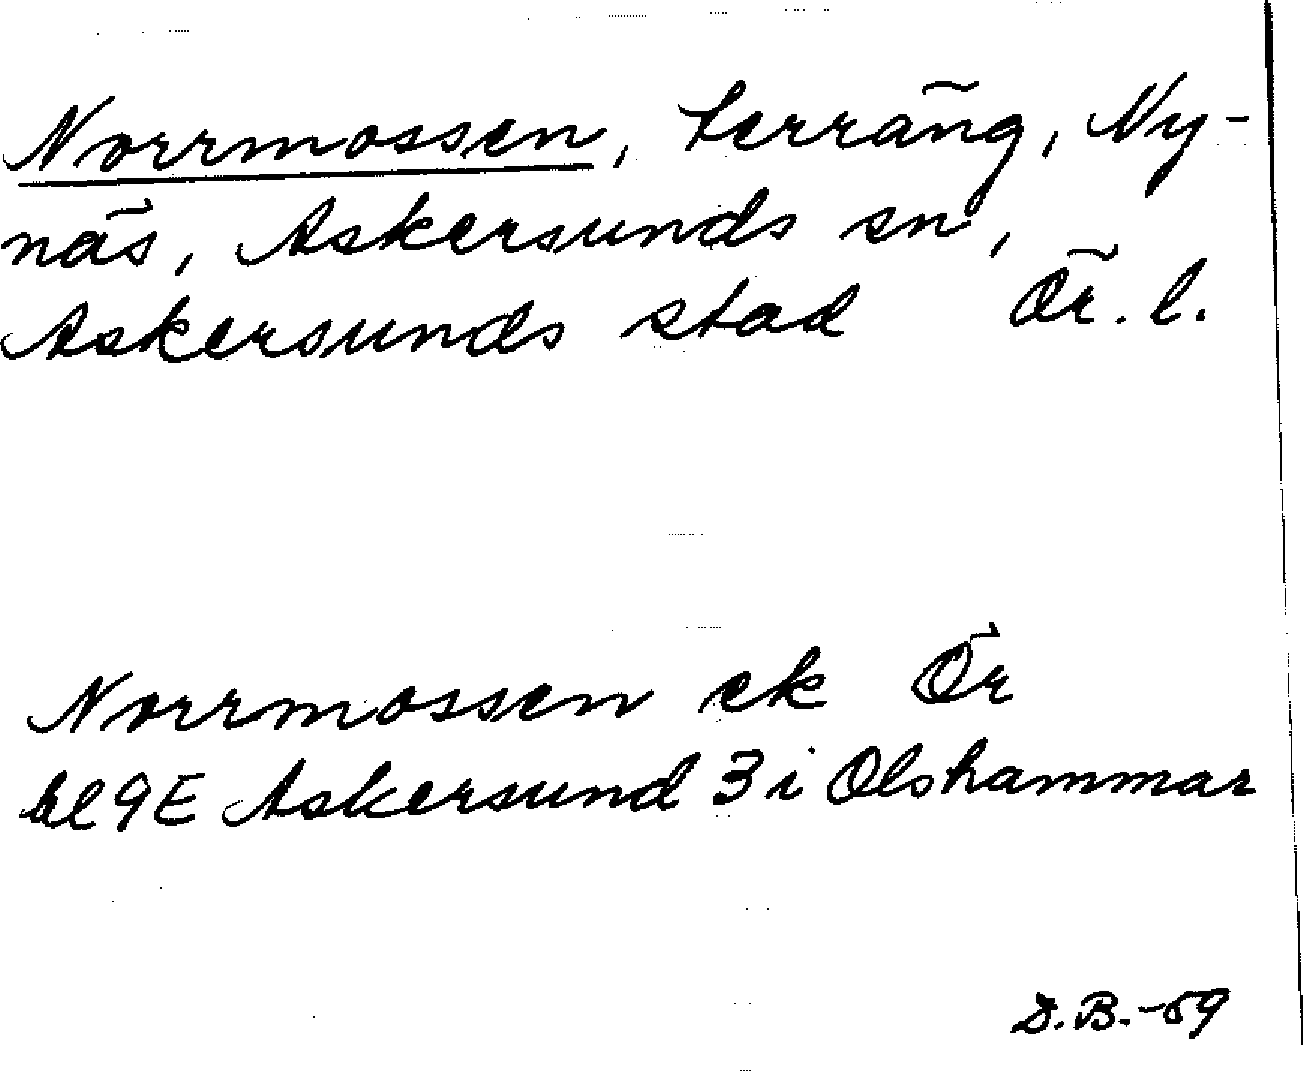 Norrmossen, terräng, Ny-
näs, Askersunds sn,
Askersunds stad Ör. l.
Norrmossen ek Ör
bl 9E Askersund 3 i Olshammar
D.B.-69